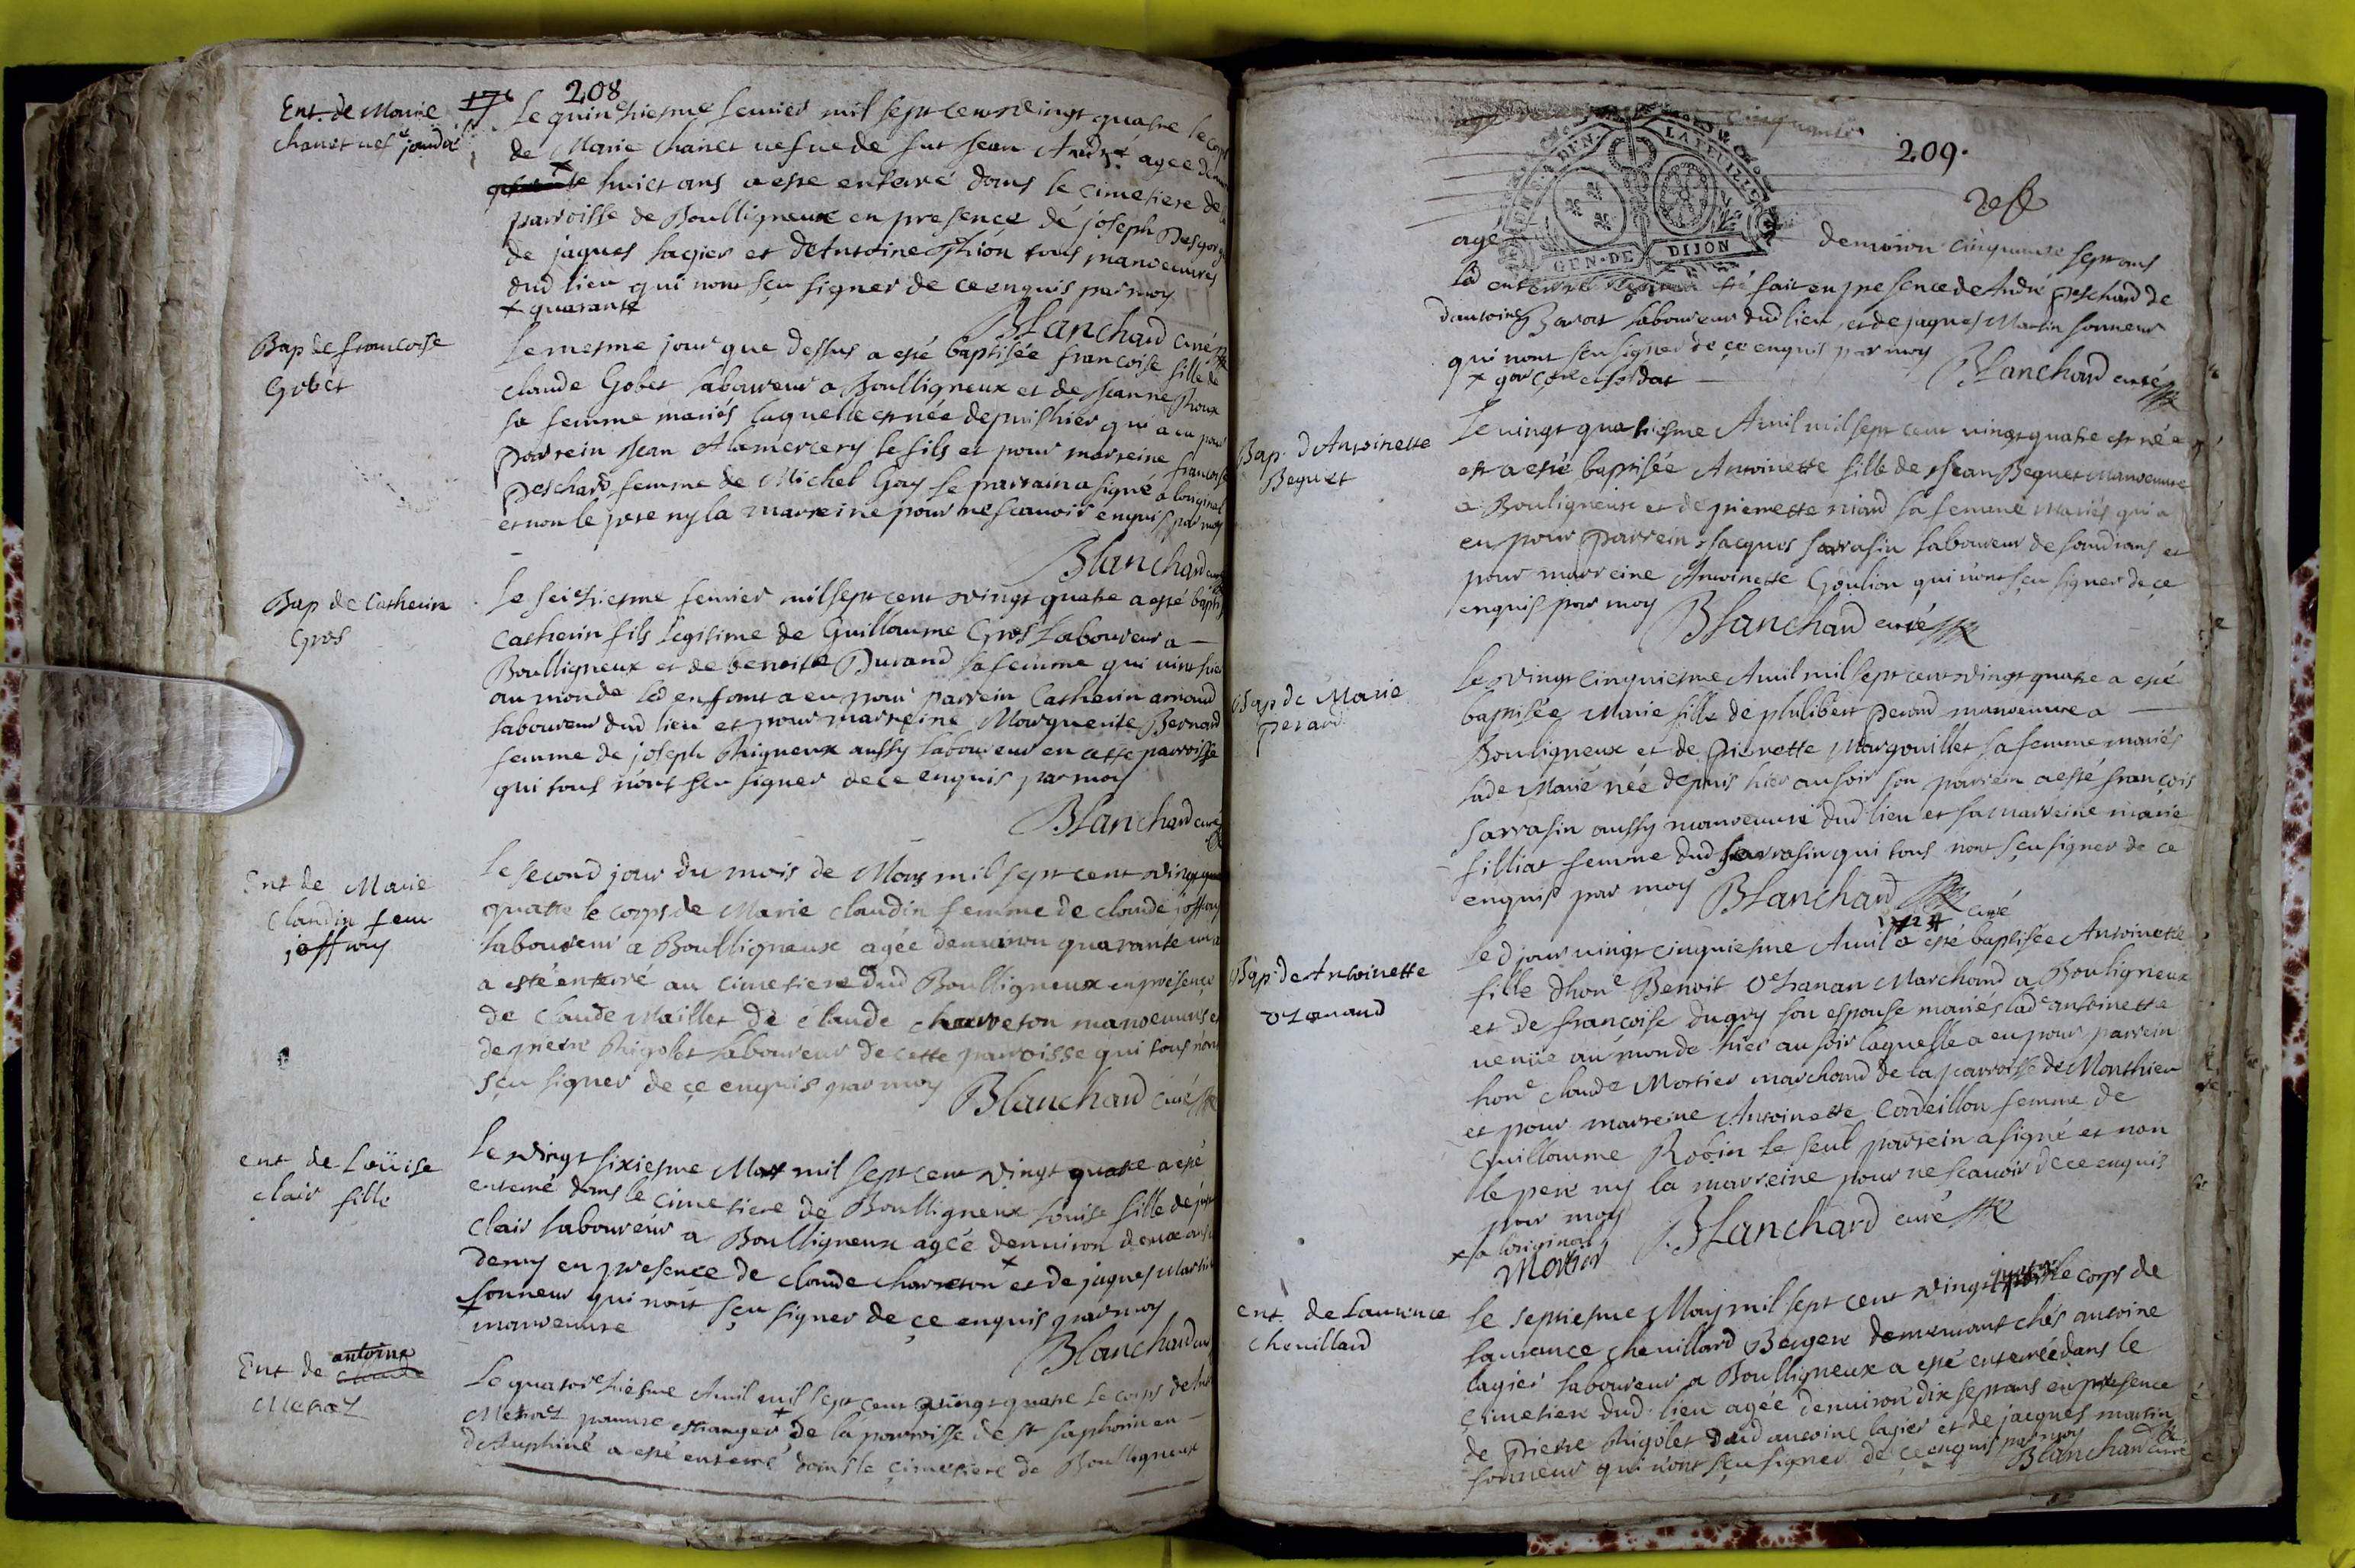 208
Ent. de Marie
chanet vef
Le quinziesme fevrier mil sept cent vingt quatre le corps
de Marie chanet vefve de fut Jean agee
huict ans a esté enterré dans le cimetiere de
parroisse de Boulligneux en presence de joseph
de jaques lagier et de Antoine tous manoeuvres
dud lieu qui nont sçu signer de ce enquis par moy
+ quarante
Blanchard curé
Bap de francoise
Gobet
Le mesme jour que dessus a esté baptisée francoise fille de
claude Gobet laboureur a Boulligneux et de Jeanne
sa femme mariés laquelle est née depuis hier qui a eu pour
parrein Jean Alamercery le fils et pour marreine francoise
Peschard femme de Michel Gay le parrain a signé a loriginal
et non le pere ny la marreine pour ne scavoir enquis par moy
Blanchard curé
Bap de Catherin
Gros
Le seiziesme fevrier mil sept cent vingt quatre a esté baptisé
Catherin fils legitime de Guillaume Gros laboureur a
Boulligneux et de benoite Durand sa femme qui vint hier
au monde led enfant a eu pour parrein Catherin arnaud
laboureur dud lieu et pour marreine Marguerite Bernard
femme de joseph Rigneux aussy laboureur en cette parroisse
qui tous nont sçu signer de ce enquis par moy
Blanchard curé
Ent de Marie
Claudin fem
joffray
Le second jour du mois de Mars mil sept cent vingt
quatre le corps de Marie claudin femme de claude joffray
laboureur a Boulligneux agée denviron quarante un
a esté enterré au cimetiere dud Boulligneux en presence
de Claude Maillet de claude charreton manoeuvres et
de pierre Rigolet laboureur de cette parroisse qui tous nont
sçu signer de ce enquis par moy Blanchard curé
ent de Loüise
clair fille
Le vingt sixiesme Mars mil sept cent vingt quatre a esté
enterré dans le cimetiere de Boulligneux Louise fille de
clair laboureur a Boulligneux agée denviron deux ans
demy en presence de claude charreton + et de jaques Martin
sonneur qui nont sçu signer de ce enquis par moy
+ manoeuvre
Blanchard curé
Ent de antoine
Le quatorziesme Avril mil sept cent vingt quatre le corps de
pauvre estranger + de la parroisse de St saphorin en
dauphiné a esté enterré dans le cimetiere de Boulligneux
209.
GEN. DE DIJON
agé denviron cinquante sept ans
led enterre fait en presence de André Peschard de
dantoine Barat laboureur dud lieu, et de jaques Martin sonneur
qui nont sçu signer de ce enquis par moy
+ garçon et soldat
Blanchard curé
Bap. d'Antoinette
Beguet
Le vingt quatriesme Avril mil sept cent vingt quatre est née
et a esté baptisée Antoinette fille de Jean Beguet manoeuvre
a Bouligneux et de pierrette niard sa femme mariés qui a
eu pour parrein Jacques sarrasin laboureur de sandrans et
pour marreine Antoinette Goulion qui nont sçu signer de ce
enquis par moy Blanchard curé
Bap de Marie
perard
Le vingt cinquiesme Avril mil sept cent vingt quatre a esté
baptisée Marie fille de philibert perard manoeuvre a
Bouligneux et de Pierrette Margouillet sa femme mariés
lade Marie née depuis hier au soir son parrein a esté françois
sarrasin aussy manoeuvre dud lieu et sa marreine marie
filliat femme dud sarrasin qui tous nont sçu signer de ce
enquis par moy Blanchard curé
Bap. de Antoinette
ozanand
Led jour vingt cinquiesme Avril 1724 a esté baptisée Antoinette
fille dhone Benoit Ozanan Marchand a Bouligneux
et de françoise dugoy son espouse mariés lade antoinette
venüe au monde hier au soir laquelle a eu pour parrein
hone claude Mortier marchand de la parroisse de Monthieu
et pour marreine Antoinette Cordeillon femme de
Guillaume Robin le seul parrein a signé + et non
le pere ny la marreine pour ne scavoir de ce enquis
par moy Blanchard curé
+ a loriginal
Mortier
ent de Laurence
Chevillard
Le septiesme May mil sept cent vingt quatre le corps de
laurance chevillard Bergere demeurant chés antoine
lagier laboureur a Boulligneux a esté enterrée dans le
cimetiere dud lieu agée denviron dix sept ans en presence
de pierre Rigolet dud antoine lagier et de jacques martin
sonneur qui nont sçu signer de ce enquis par moy
Blanchard curé